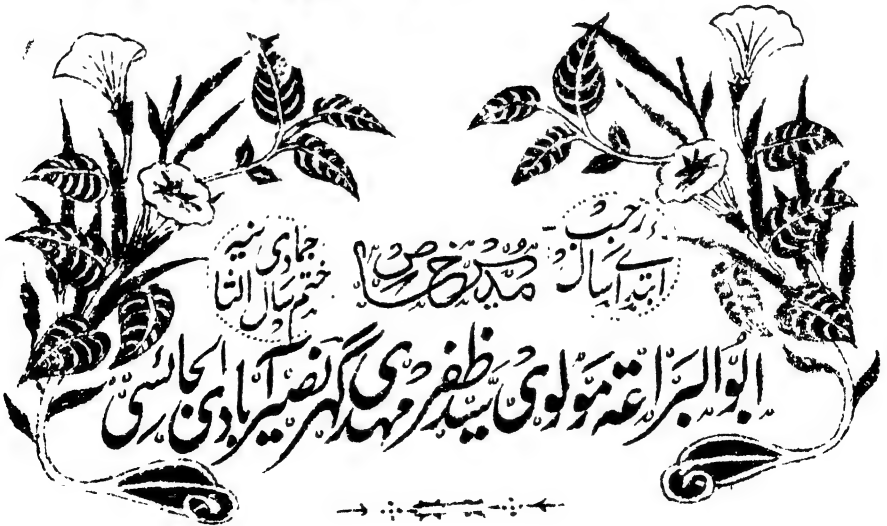 ابتدائے سال رجب
مدیر خاص
ختم سال جمادی الثانیہ
ابو البراعۃ مولوی سید ظفر مہدی گہر نصیرآبادی الجائسی